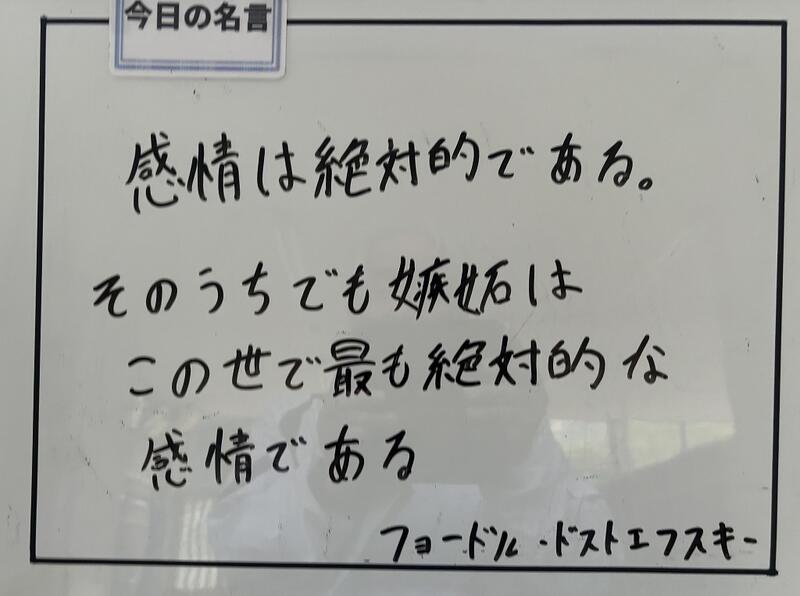 今日の名言
感情は絶対的である。
そのうちでも嫉妬は
この世で最も絶対的な
感情である
フョードル・ドストエフスキー